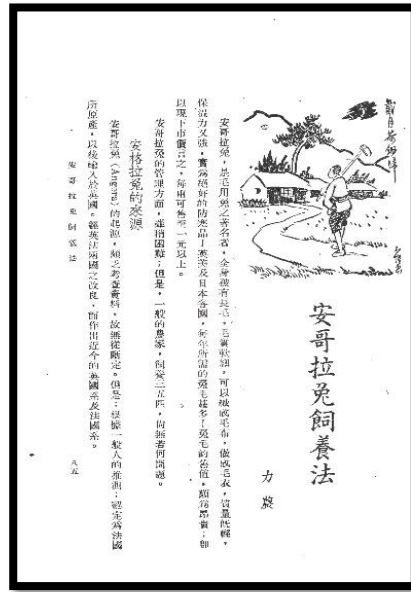 月荷鋤歸
安哥拉兔飼養法
力
安哥拉兔,是毛用兔之著名者,全身被有長毛,毛質軟韌,可以織成毛布,做成毛衣,質量既輕,
保溫力又強,實為絕好的防寒品!英美及日本各國,每年所需的兔毛甚多!兔毛的價值,頗為昂貴;即
以現下市價言之,每兩可售至一元以上。
安哥拉兔的管理方面,雖稍困難;但是,一般的農家,飼養三五匹,尚無若何問題。
安格拉兔的來源
安哥拉兔(Angora)的起源,頗乏考查資料,故無從斷定。但是;根據一般人的推測;認定為法國
所原產,以後輸入於英國。經英法兩國之改良,而作出近今的英國系及法國系。
安哥拉兔飼養法
八五